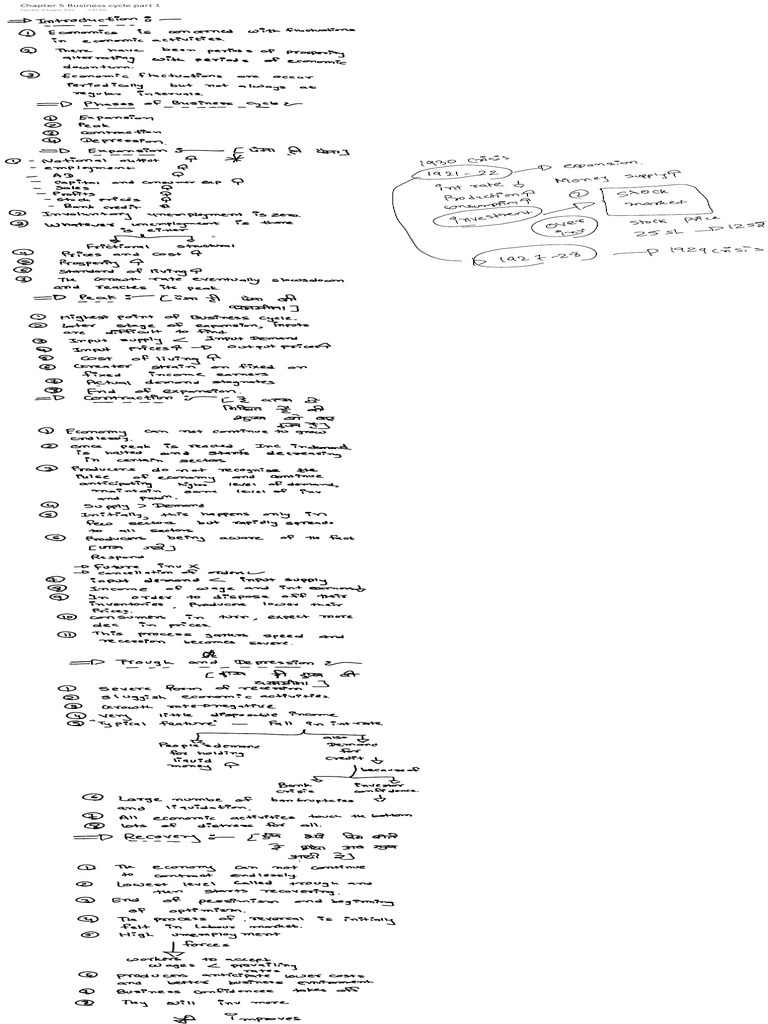 Chapter 5 Business cycle part 1
Introduction :-
① Economics is concerned with fluctuations
in economic activities.
② There have been periods of prosperity
alternating with periods of economic
downturn.
③ Economic fluctuations are occur
periodically but not always at
regular intervals
Phases of Business Cycle
① Expansion
② Peak
③ Contraction
④ Depression
Expansion :-
① - National output ↑
- employment ↑
- AD ↑
- Capital and consumer exp ↑
- Sales ↑
- Profits ↑
- Stock Prices ↑
- Bank credit ↑
② Involuntary unemployment is zero.
③ Whatever unemployment is there
is either
Frictional structural
④ Prices and cost ↑
⑤ Prosperity ↑
⑥ Standard of living ↑
⑧ The Growth rate eventually slowsdown
and reaches its peak
Peak :-
① Highest point of Business cycle.
② Later stage of expansion, inputs
are difficult to find
③ Input supply < Input Demand
④ Input prices ↑ → output prices ↑
⑤ Cost of living ↑
⑥ Greater strain on fixed on
fixed income earners
Actual demand stagnates
End of expansion.
Contraction :-
① Economy can not continue to grow
endlessly.
② once peak is reached, Inc in demand
is halted and starts decreasing
in certain sectors
③ Producers do not recognise the
Pulse of economy and continue
anticipating higher level of demand,
maintain same level of inv
and
④ Supply > Demand
⑤ Initially, this happens only in
few sectors but rapidly spreads
to all sectors
⑥ Producers being aware of the fact
Respond
→ Future inv X
→ Cancellation of orders
⑦ input demand < input supply
⑧ Income of wage and int earners ↓
⑨ In order to dispose off their
inventories, Producers lower their
Prices.
⑩ consumers in turn, expect more
dec in prices
⑪ This process gathers speed and
recession becomes severe.
Trough and Depression
① Severe form of recession
② Sluggish economic activities
③ Growth rate → negative
④ very little disposable income
⑤ "Typical feature" - Fall in int rate
also
People's demand
for holding
liquid
money ↑
Demand
for
credit ↓
because of
Bank
crisis
investor
confidence ↓
⑥ Large number of bankruptcies
and liquidation.
⑦ All economic activities touch the bottom
⑧ lots of distress for all.
Recovery :-
① The economy can not continue
to contract endlessly
② Lowest level called trough and
then starts recovering.
③ End of pessimism and beginning
of optimism.
④ The process of reversal is initially
felt in labour market.
⑤ High unemployment
forces
workers to accept
wages < prevailing
rates
⑥ producers anticipate lower costs
and better business environment
⑦ Business confidences takes off
⑧ They will inv more
improves
1930 crisis
1921-22 → expansion.
int rate ↓
Production ↑
consumption ↑
investment
Money supply ↑
②
Stock
market
over
stock price
25 sh → 125
1927-28 → 1929 crisis